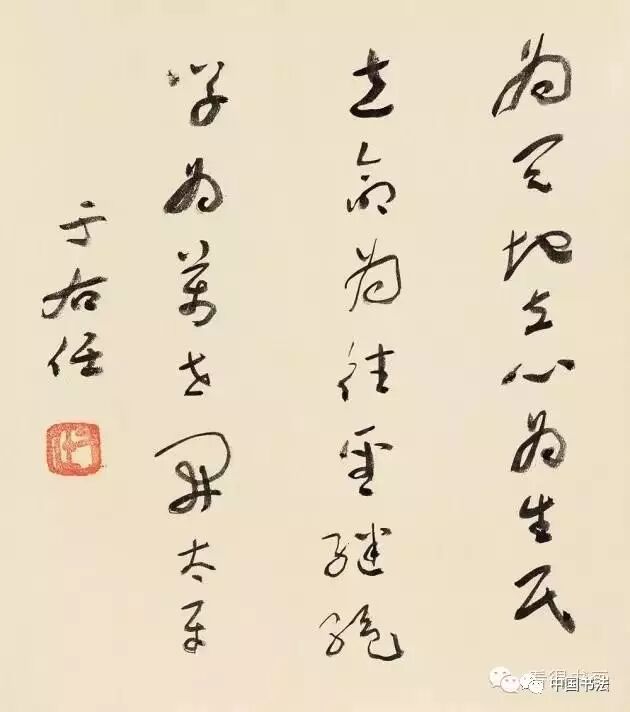 为天地立心为生民
立命为往圣继绝
学为万世开太平
于右任
看得书画
中国书法